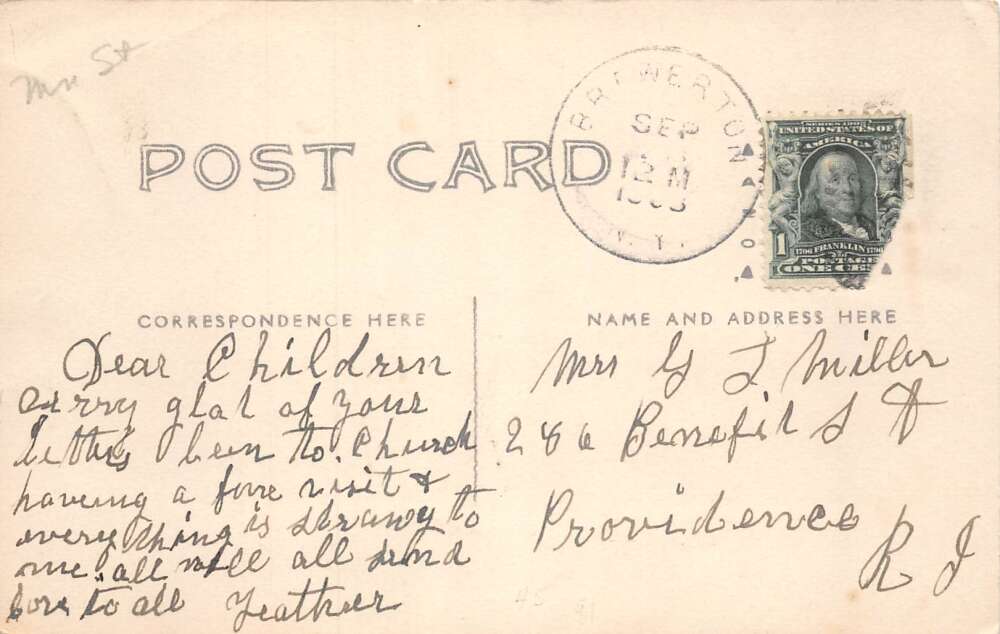 Mrs St
POST CARD
BREWERTON
SEP
12 M
N. Y.
SERIES 1902
UNITED STATES OF
AMERICA
1
1706 FRANKLIN 1790
POSTAGE
ONE CE
CORRESPONDENCE HERE
NAME AND ADDRESS HERE
Dear Children
verry glad of your
letters been to Church
haveing a fine visit &
every thing is strang to
me. all well all send
love to all Feather
Mrs G L Miller
286 Benefit St
Providence
R I